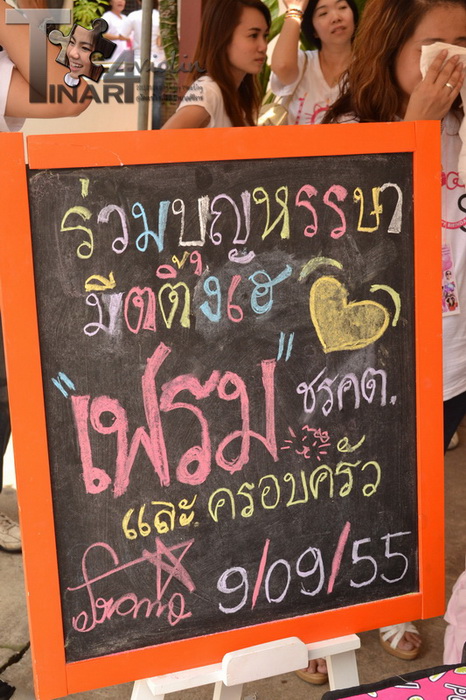 TINART 4
ร่วมบุญหรรษา
มีตติ้งเฮ
"เฟรม" ชรคต.
และ ครอบครัว
9/09/55